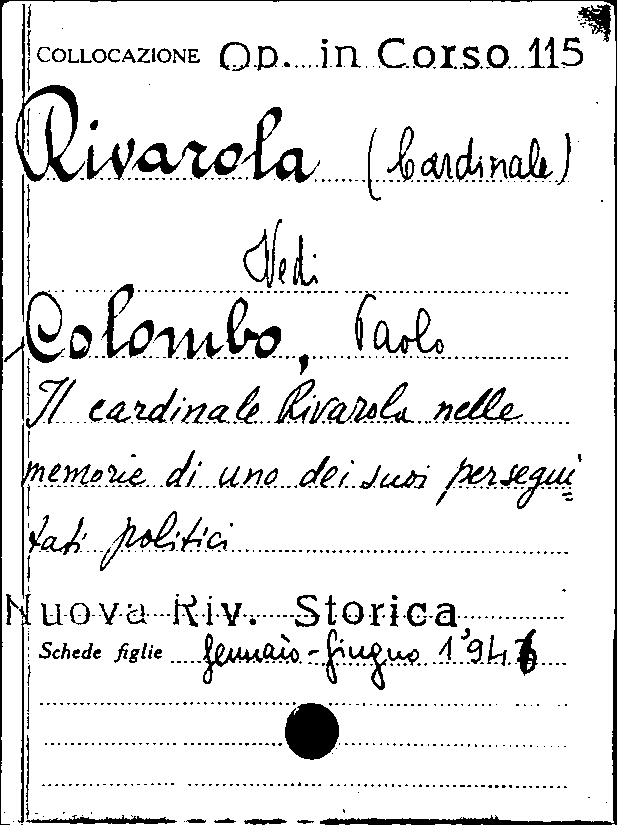 COLLOCAZIONE Op. in Corso 115
Rivarola (Cardinale)
Vedi
Colombo, Paolo
Il cardinale Rivarola nelle
memorie di uno dei suoi persegui
tati politici
Nuova Riv. Storica
Schede figlie Gennaio-Giugno 1946